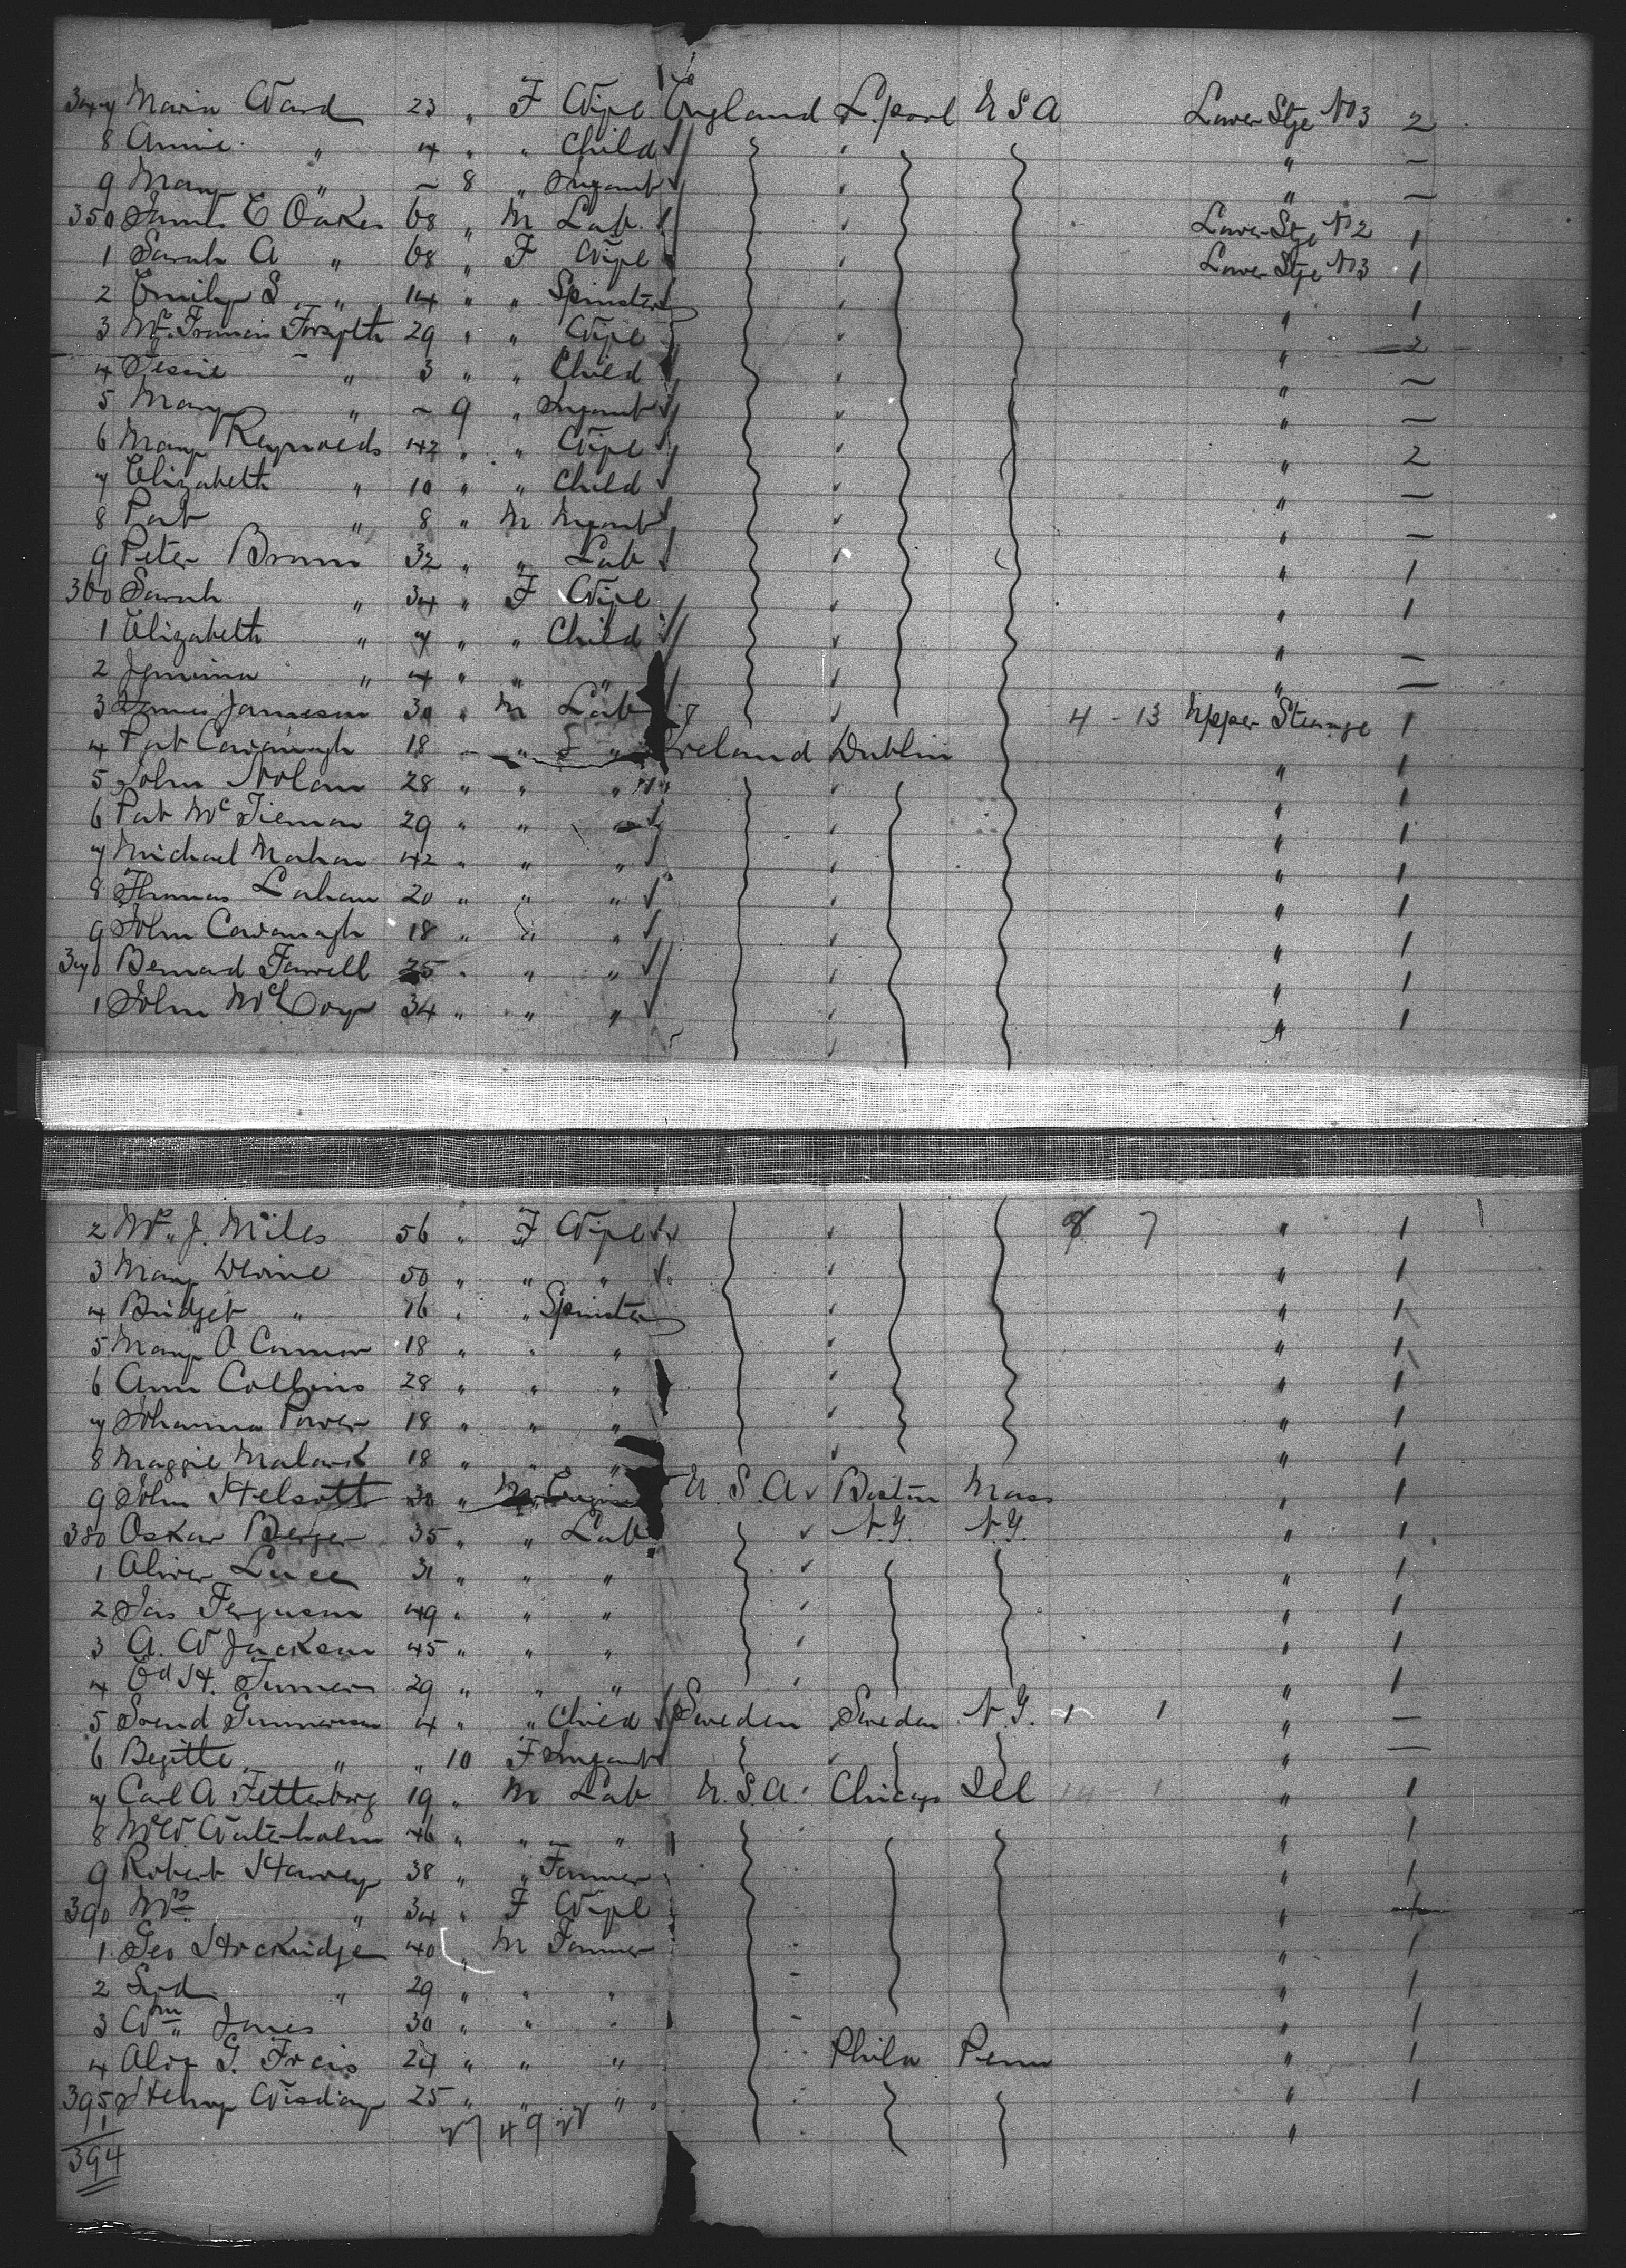 347 Maria Ward 23 " F Wife England L.pool U S A Lower Stge No 3 2
8 Annie " 4 " " Child " —
9 Mary " ~ 8 " Infant " —
350 James E Oakes 68 " M Lab. Lower Stge No 2 1
1 Sarah A " 68 " F Wife Lower Stge No 3 1
2 Emily S " 14 " " Spinster " 1
3 Mrs Francis Forsyth 29 " " Wife " 2
4 Jessie " 3 " " Child " —
5 Mary " ~ 9 " Infant " —
6 Mary Reynolds 42 " " Wife " 2
7 Elizabeth " 10 " " Child " —
8 Pat " 8 " M Infant " —
9 Peter Brown 32 " " Lab " 1
360 Sarah " 34 " F Wife " 1
1 Elizabeth " 7 " " Child " —
2 Jemima " 4 " " " " —
3 James Jameson 30 " M Lab 4 - 13 Upper Steerage 1
4 Pat Cavanagh 18 " " " Ireland Dublin " 1
5 John Nolan 28 " " " " 1
6 Pat McTiernan 29 " " " 1
7 Michael Mahon 42 " " " " 1
8 Thomas Lahan 20 " " " " 1
9 John Cavanagh 18 " " " " 1
370 Bernard Farrell 25 " " " " 1
1 John McCoy 34 " " " " 1
2 Mrs J. Miles 56 " F Wife 7 " 1
3 Mary Devine 50 " " " " 1
4 Bridget " 16 " " Spinster " 1
5 Mary O Connor 18 " " " " 1
6 Ann Collins 28 " " " " 1
7 Johanna Power 18 " " " " 1
8 Maggie 18 " " " " 1
9 John 30 " M U.S.A Boston Mass " 1
380 Oskar Berger 35 " " Lab N.Y. N.Y. " 1
1 Oliver Luce 31 " " " " 1
2 Jas Ferguson 49 " " " " 1
3 A. W Jackson 45 " " " " 1
4 Ed H. Turner 29 " " " " 1
5 Svend Gunnerson 4 " " Child Sweden Sweden N.Y. 1 1 " —
6 Begitte " " 10 F Infant " —
7 Carl A Fetterborg 19 " M Lab U.S.A. Chicago Ill 14 - 1 " 1
8 Waterholm 46 " " " " 1
9 Robert Harvey 38 " " Farmer " 1
390 Mrs " 34 " F Wife " 1
1 Geo Stockridge 40 " M Farmer " 1
2 " 29 " " " " 1
3 Wm Jones 30 " " " " 1
4 Alex G. 24 " " " Phila Penn " 1
395 Henry 25 " " " " 1
1 49 "
394